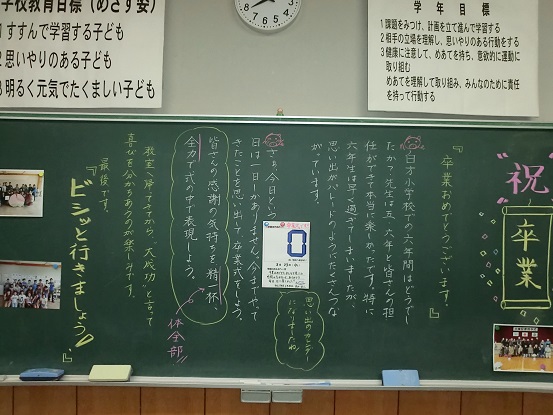 学校教育目標（めざす姿）
1 すすんで学習する子ども
2 思いやりのある子ども
3 明るく元気でたくましい子ども
学年目標
1 課題をみつけ、計画を立て進んで学習する
2 相手の立場を理解し、思いやりのある行動をする
3 健康に注意して、めあてを持ち、意欲的に運動に
取り組む
めあてを理解して取り組み、みんなのために責任
を持って行動する
"祝"
卒業
『卒業おめでとうございます。』
白才小学校での六年間はどうでし
たか？先生は五、六年と皆さんの担
任ができて本当に楽しかったです。特に
六年生は早く過ぎてしまいましたが、
思い出がパレードのようにたくさんつな
がっています。
思い出のカレンダー
になりましたね。
0
さぁ、今日という
日は一日しかありません。今までやって
きたことを思い出して卒業式をしよう。
皆さんの感謝の気持ちを精一杯、
全力で式の中で表現しよう。
体全部!!
教室へ帰ってきてから、大成功と言って
喜びを分かちあうのが楽しみです。
最後です。
『ビシッと行きましょう。』